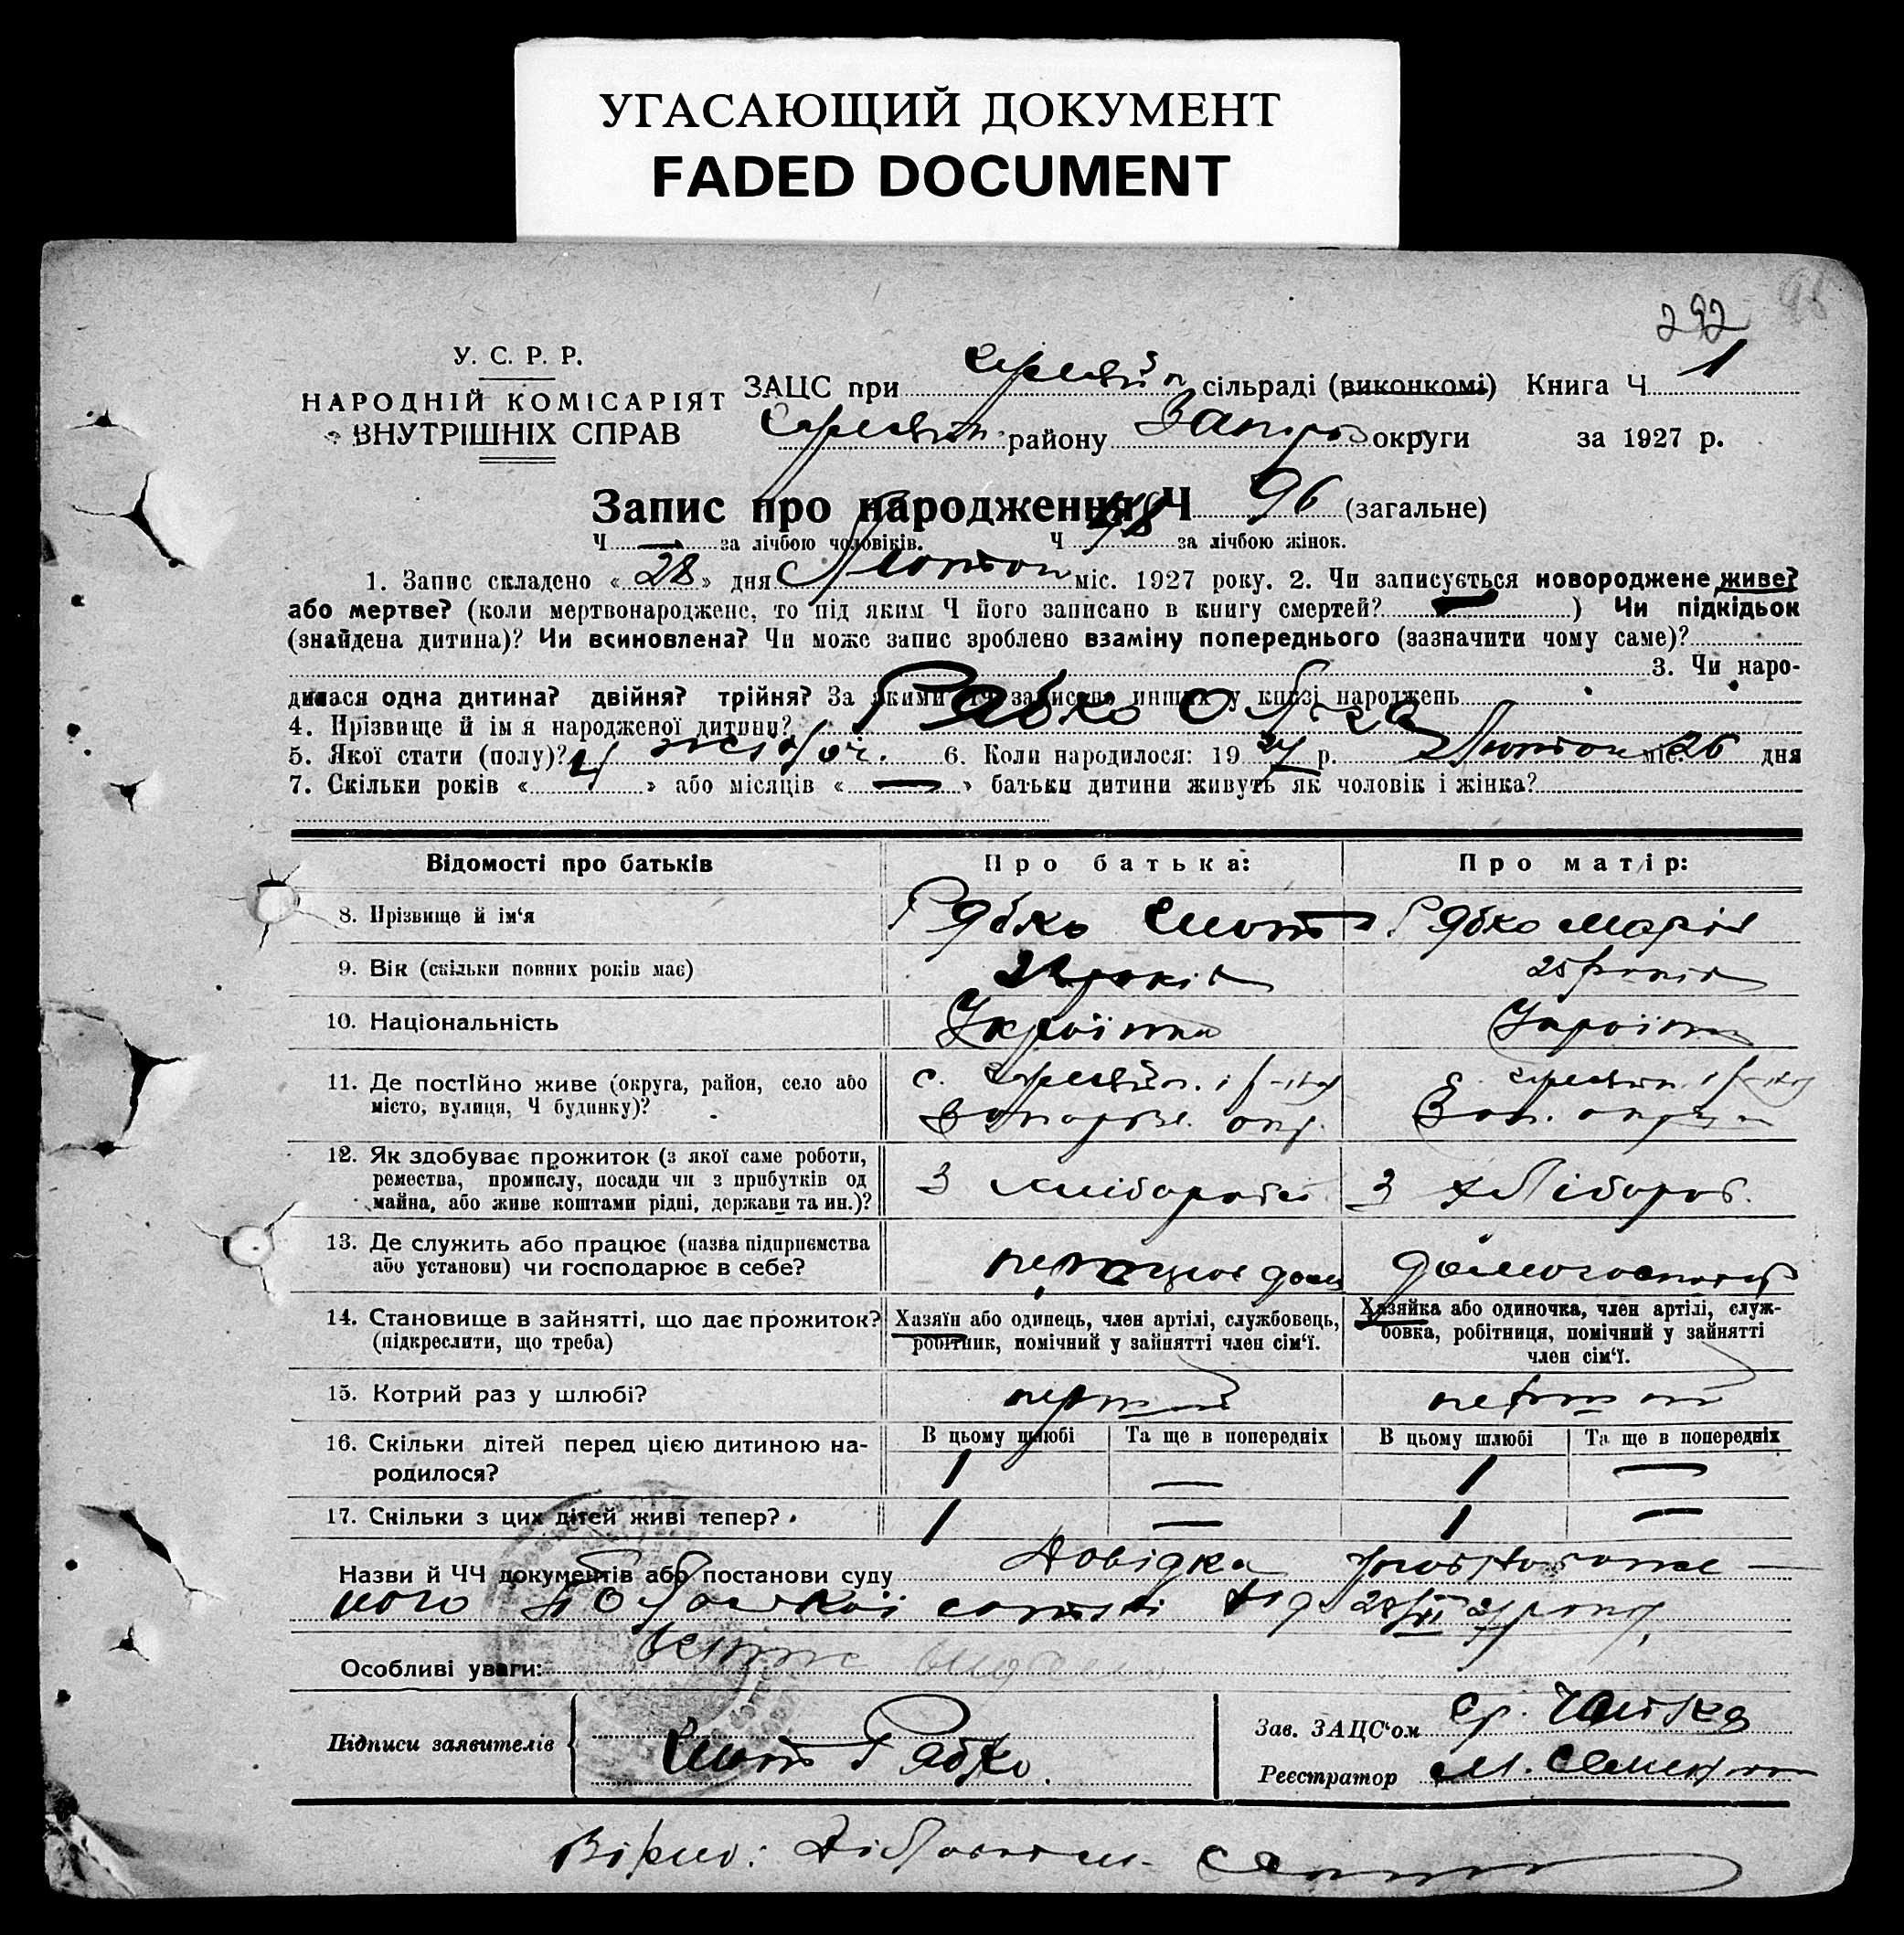 УГАСАЮЩИЙ ДОКУМЕНТ
FADED DOCUMENT
292
У. С. Р. Р.
НАРОДНІЙ КОМІСАРІЯТ
ВНУТРІШНІХ СПРАВ
ЗАЦС при сільраді (виконкомі) Книга Ч 1
району Запоріз округи за 1927 р.
Запис про народження Ч 96 (загальне)
Ч — за лічбою чоловіків. Ч 48 за лічбою жінок.
1. Запис складено « 28 » дня Лютого міс. 1927 року. 2. Чи записується новороджене живе?
або мертве? (коли мертвонароджене, то під яким Ч його записано в книгу смертей? — ) Чи підкідьок
(знайдена дитина)? Чи всиновлена? Чи може запис зроблено взаміну попереднього (зазначити чому саме)?
3. Чи наро-
дилася одна дитина? двійня? трійня? За якими ЧЧ записано инших у книзі народжень
4. Прізвище й ім'я народженої дитини? Рябко
5. Якої стати (полу)? жіноч. 6. Коли народилося: 19 27 р. Лютого міс. 26 дня
7. Скільки років « 4 » або місяців « — » батьки дитини живуть як чоловік і жінка?
Відомості про батьків Про батька: Про матір:
8. Прізвище й ім'я Рябко Рябко Марія
9. Вік (скільки повних років має) років 25 років
10. Національність Українка
11. Де постійно живе (округа, район, село або с. с.
місто, вулиця, Ч будинку)? Запорізк. окр. Зап. округи
12. Як здобуває прожиток (з якої саме роботи,
ремества, промислу, посади чи з прибутків од З хліборобст З хлібороб.
майна, або живе коштами рідні, держави та ин.)?
13. Де служить або працює (назва підприємства
або установи) чи господарює в себе? дома домогоспод
14. Становище в зайнятті, що дає прожиток? Хазяїн або одинець, член артілі, службовець, Хазяйка або одиночка, член артілі, служ-
(підкреслити, що треба) робітник, помічний у зайнятті член сім'ї. бовка, робітниця, помічний у зайнятті
член сім'ї.
15. Котрий раз у шлюбі? перший перший
16. Скільки дітей перед цією дитиною на- В цьому шлюбі Та ще в попередніх В цьому шлюбі Та ще в попередніх
родилося? 1 — 1 —
17. Скільки з цих дітей живі тепер? 1 — 1 —
Назви й ЧЧ документів або постанови суду Довідка
ного сотні від 28/II 27 року
Особливі уваги:
Підписи заявителів Рябко.
Зав. ЗАЦС'ом
Реєстратор М.
Вірно: